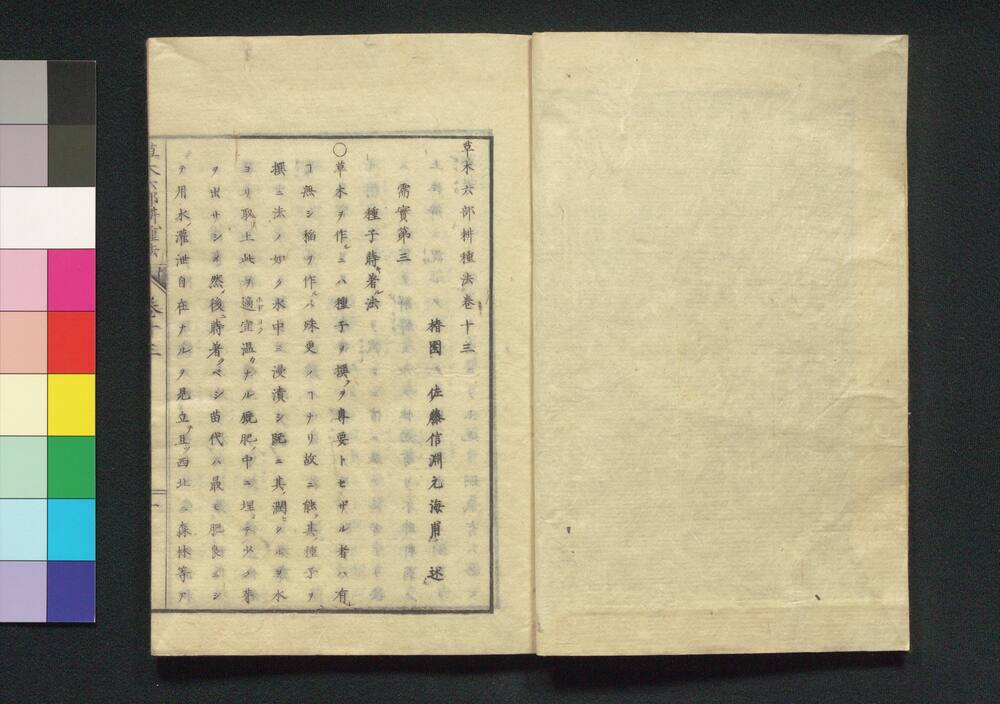 草木六部耕種法卷十三
椿園 佐藤信淵元海甫 述
需實第三
種子蒔著法
〇草木ヲ作ルニハ種子ヲ撰フヲ專要トセザル者ハ有
ヿ無シ稲ヲ作ルハ殊更ノヿナリ故ニ能其種子ヲ
撰ミ法ノ如ク水中ニ浸漬シ既ニ其潤ヒタルヲ水
ヨリ取リ上此ヲ適宜温カナル厩肥ノ中ニ埋テ少ク芽
ヲ出サシメ然後ニ蒔著クベシ苗代ハ最モ肥良ニシ
テ用水ノ灌泄自在ナルヲ見立且ツ西北ニ森林等ア
草木六部耕種法
卷十三
一